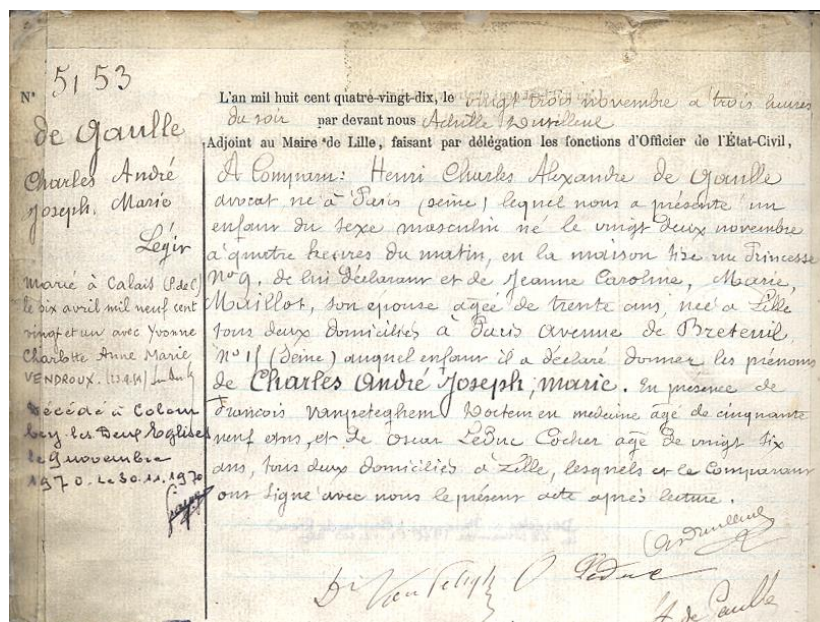 N° 5153
de Gaulle
Charles André
Joseph, Marie
Légit
Marié à Calais (P de C)
le six avril mil neuf cent
vingt et un avec Yvonne
Charlotte Anne Marie
VENDROUX.
Décédé à Colom
bey-les-Deux-Eglises
le 9 novembre
1970. le 30.11.1970
L'an mil huit cent quatre-vingt-dix, le vingt trois novembre à trois heures
du soir par devant nous Achille
Adjoint au Maire de Lille, faisant par délégation les fonctions d'Officier de l'État-Civil,
A Comparu: Henri Charles Alexandre de Gaulle
avocat, né à Paris (Seine) lequel nous a présenté un
enfant du sexe masculin né le vingt deux novembre
à quatre heures du matin, en la maison sise rue Princesse
N° 9, de lui déclarant et de Jeanne Caroline, Marie,
Maillot, son épouse âgée de trente ans, née à Lille
tous deux domiciliés à Paris avenue de Breteuil
N° 15 (Seine) auquel enfant il a déclaré donner les prénoms
de Charles André Joseph, Marie. En présence de
François Vanpeteghem Docteur en médecine âgé de cinquante
neuf ans, et de Oscar Leduc Cocher âgé de vingt six
ans, tous deux domiciliés à Lille, lesquels et le Comparant
ont signé avec nous le présent acte après lecture.
O Leduc
H de Gaulle